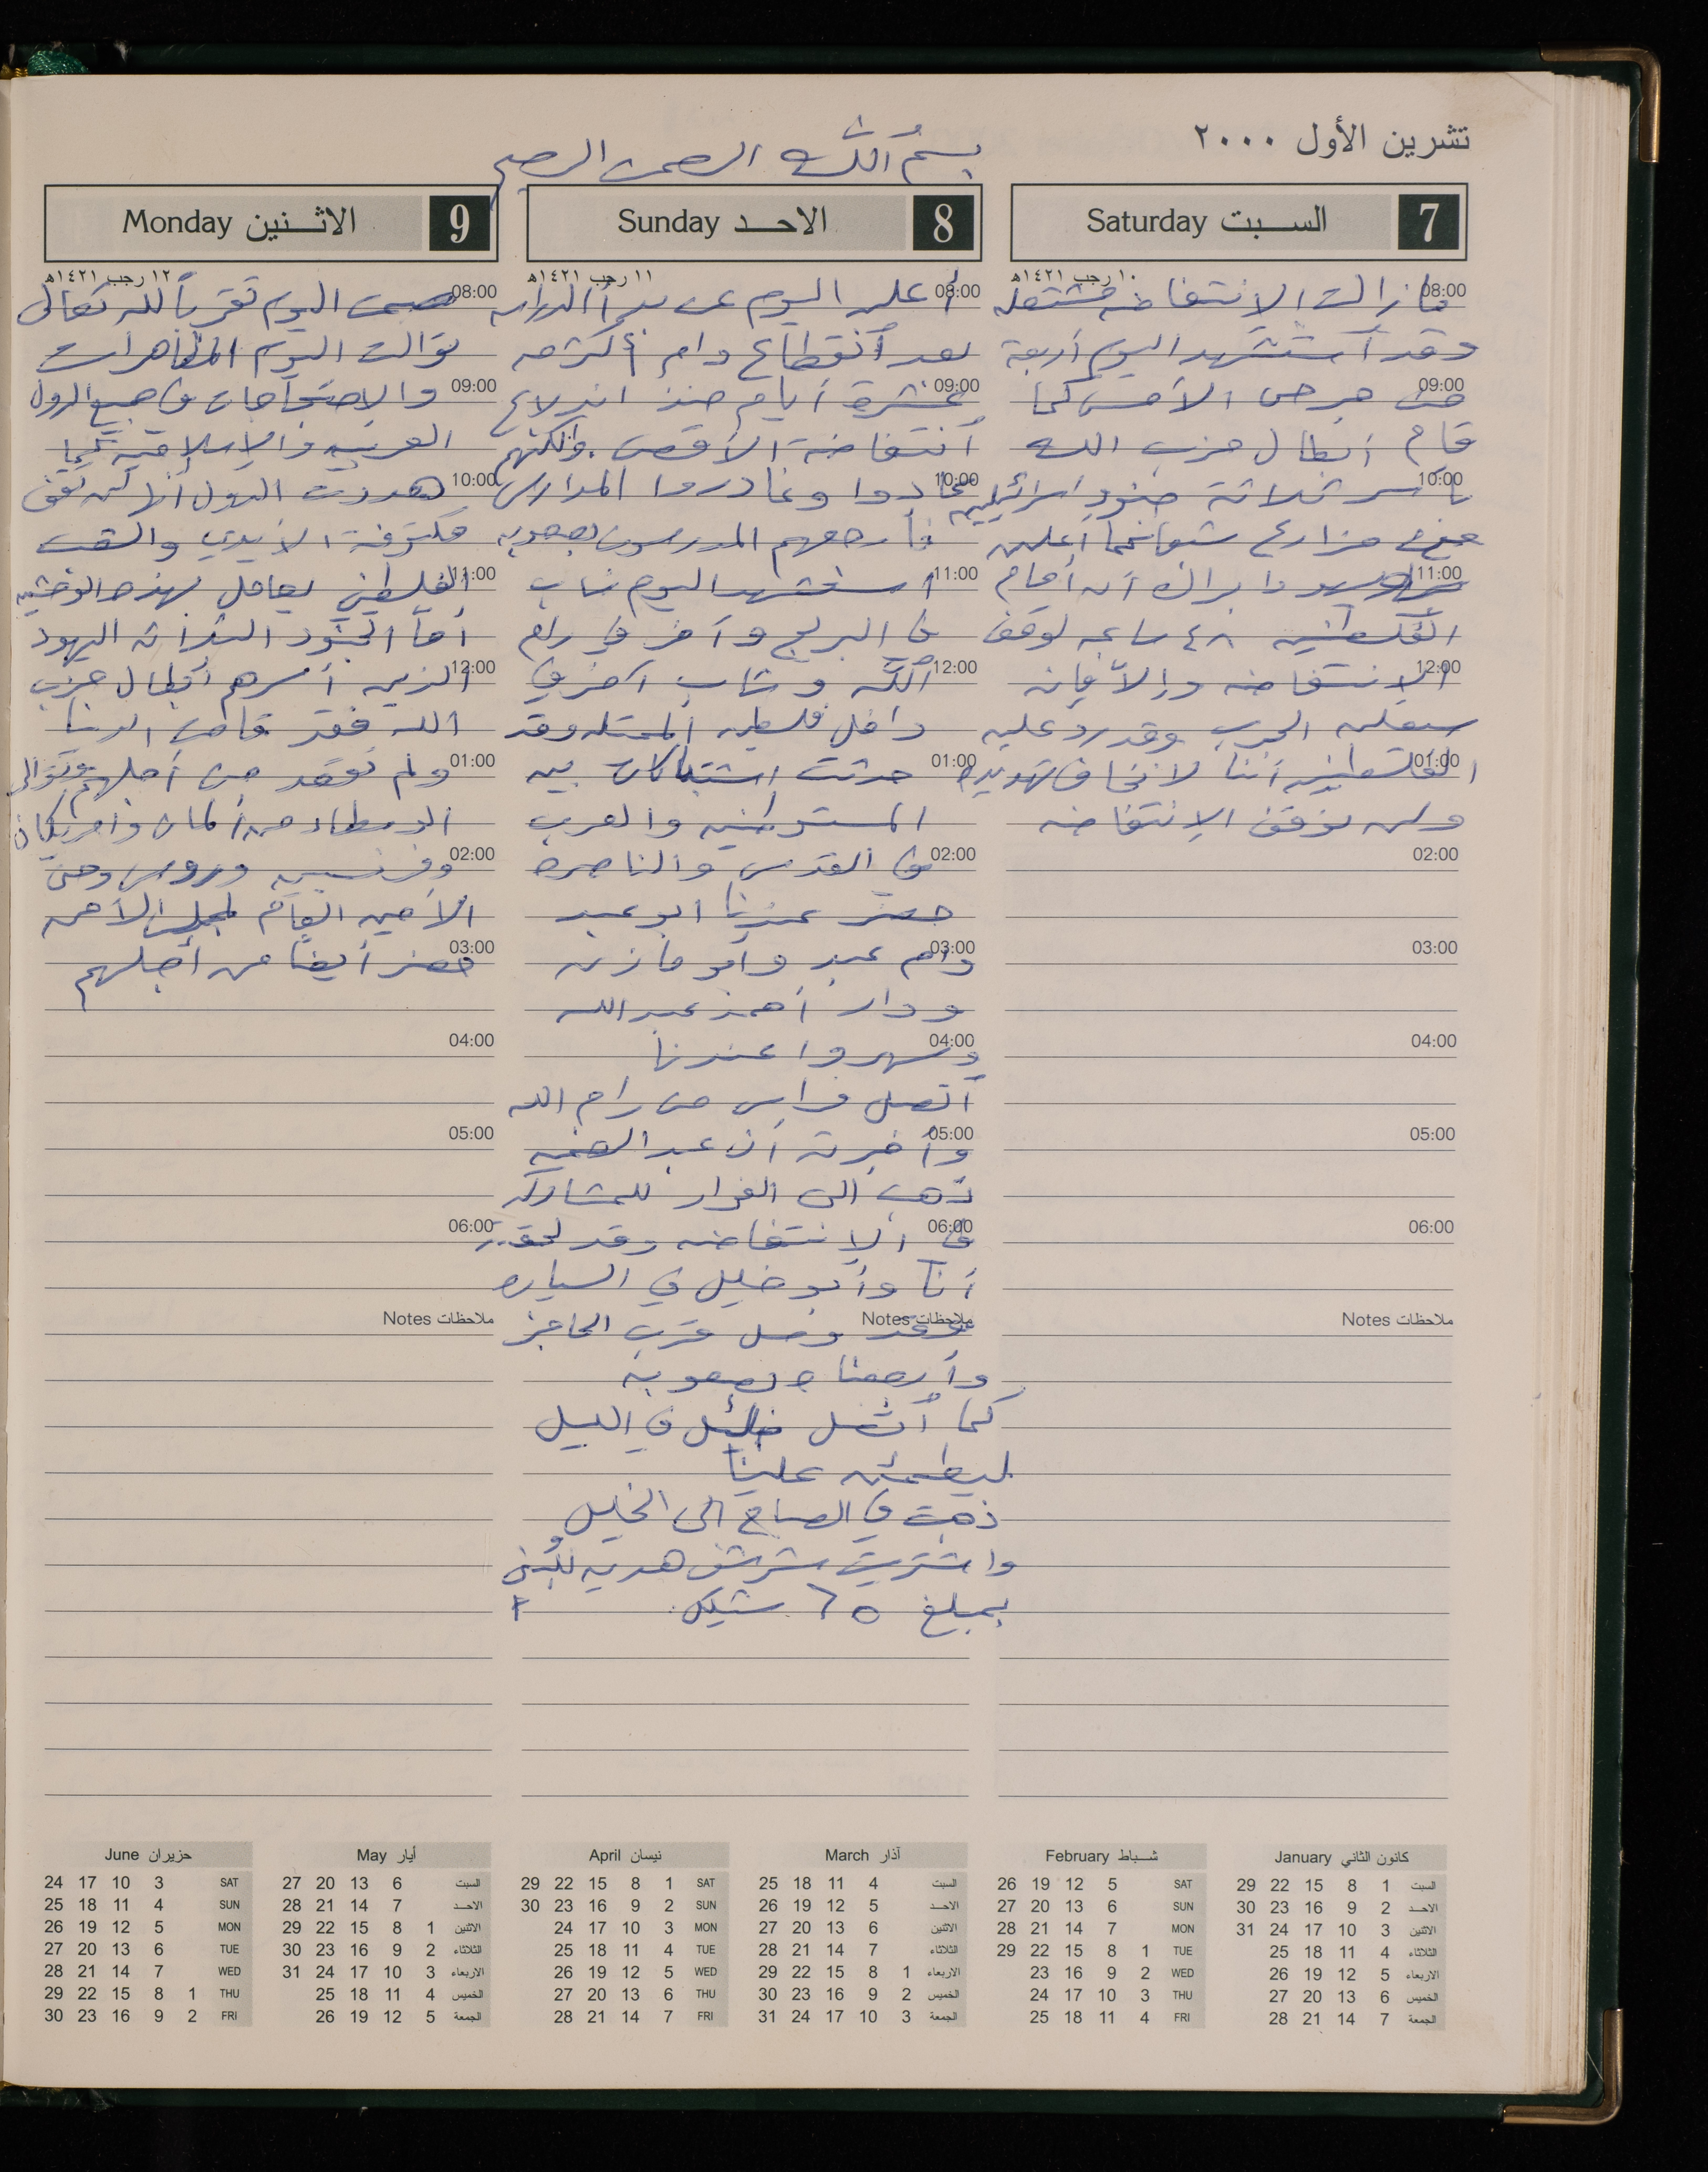 تشرين الأول ٢٠٠٠
بسم الله الرحمن الرحيم
7 السبت Saturday
١٠ رجب ١٤٢١هـ
08:00
ما زالت الانتفاضه مشتعله
وقد استشهد اليوم أربعة
09:00
من جرحى الأمس كما
قام أبطال حزب الله
10:00
بأسر ثلاثة جنود اسرائيليين
من مزارع شبعا كما أعلن
11:00
باراك أن أمام
الفلسطينيين ٤٨ ساعه لوقف
12:00
الانتفاضه وإلا فإنه
سيعلن الحرب وقد رد عليه
01:00
الفلسطينين أننا لا نخاف تهديده
ولن نوقف الإنتفاضه
02:00
03:00
04:00
05:00
06:00
ملاحظات Notes
8 الاحد Sunday
١١ رجب ١٤٢١هـ
08:00
أعلن اليوم عن بدأ الدراسه
بعد أنقطاع دام أكثر من
09:00
عشرة أيام منذ اندلاع
أنتفاضة الأقصى. ولكنهم
10:00
عادوا وغادروا المدارس
فأرجعهم المدرسون بصعوبه
11:00
استشهد اليوم شاب
في البريج وآخر في رام
12:00
الله وشاب آخر في
داخل فلسطين المحتله وقد
01:00
حدثت اشتباكات بين
المستوطنين والعرب
02:00
في القدس والناصره
حضر عندنا ابو عبد
03:00
وام عبد وأبو مازن
ودار أحمد عبد الله
04:00
وسهروا عندنا
أتصل فراس من رام الله
05:00
وأخبرته أن عبد الرحمن
ذهب الى الفوار للمشاركه
06:00
في الإنتفاضه وقد لحقته
أنا وأبو خليل في السياره
ملاحظات Notes
وقد وصل قرب الحاجز
وأرجعناه بصعوبه
كما أتصل خليل في الليل
ليطمئن علينا
ذهبت في الصباح الى الخليل
واشتريت شرشف هديه
بمبلغ ٦٥ شيكل.
9 الاثنين Monday
١٢ رجب ١٤٢١هـ
08:00
صمت اليوم تقرباً لله تعالى
توالت اليوم المظاهرات
09:00
والاحتجاجات في جميع الدول
العربيه والإسلاميه كما
10:00
هددت الدول أنها لن تقف
مكتوفة الأيدي والشعب
11:00
الفلسطيني يعامل بهذه الوحشيه
أما الجنود الثلاثه اليهود
12:00
الذين أسرهم أبطال حزب
الله فقد قامت الدنيا
01:00
ولم تقعد من أجلهم وتوالى
الوسطاء من ألمان وأمريكان
02:00
وفرنسيين وروس وحتى
الأمين العام لمجلس الأمن
03:00
حضر أيضاً من أجلهم
04:00
05:00
06:00
ملاحظات Notes
كانون الثاني January
السبت 1 8 15 22 29
الاحد 2 9 16 23 30
الاثنين 3 10 17 24 31
الثلاثاء 4 11 18 25
الاربعاء 5 12 19 26
الخميس 6 13 20 27
الجمعة 7 14 21 28
شباط February
SAT 5 12 19 26
SUN 6 13 20 27
MON 7 14 21 28
TUE 1 8 15 22 29
WED 2 9 16 23
THU 3 10 17 24
FRI 4 11 18 25
آذار March
السبت 4 11 18 25
الاحد 5 12 19 26
الاثنين 6 13 20 27
الثلاثاء 7 14 21 28
الاربعاء 1 8 15 22 29
الخميس 2 9 16 23 30
الجمعة 3 10 17 24 31
نيسان April
SAT 1 8 15 22 29
SUN 2 9 16 23 30
MON 3 10 17 24
TUE 4 11 18 25
WED 5 12 19 26
THU 6 13 20 27
FRI 7 14 21 28
أيار May
السبت 6 13 20 27
الاحد 7 14 21 28
الاثنين 1 8 15 22 29
الثلاثاء 2 9 16 23 30
الاربعاء 3 10 17 24 31
الخميس 4 11 18 25
الجمعة 5 12 19 26
حزيران June
SAT 3 10 17 24
SUN 4 11 18 25
MON 5 12 19 26
TUE 6 13 20 27
WED 7 14 21 28
THU 1 8 15 22 29
FRI 2 9 16 23 30